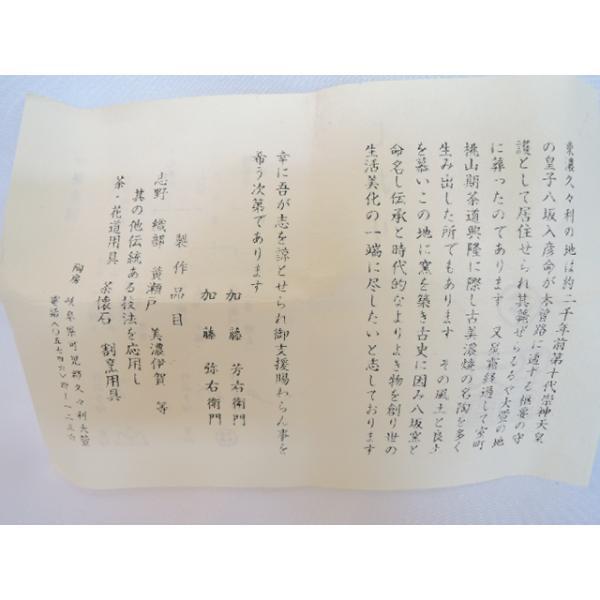 東濃久々利の地は約二千年前第十代崇神天皇
の皇子八坂入彦命が木曽路に通する枢要の守
護として居住せられ其薨ぜらるるや大萱の地
に葬ったのであります 又星霜経過して室町
桃山期茶道興隆に際し古美濃焼の名陶を多く
生み出した所でもあります その風土と良土
を慕いこの地に窯を築き古史に因み八坂窯と
命名し伝承と時代的なよりよき物を創り世の
生活美化の一端に尽したいと志しております
幸に吾が志を諒とせられ御支援賜わらん事を
希う次第であります
加藤芳右衛門
加藤弥右衛門
製作品目
志野 織部 黄瀬戸 美濃伊賀 等
其の他伝統ある技法を応用し
茶・花道用具 茶懐石 割烹用具
陶房 岐阜県可児郡久々利大萱
電話